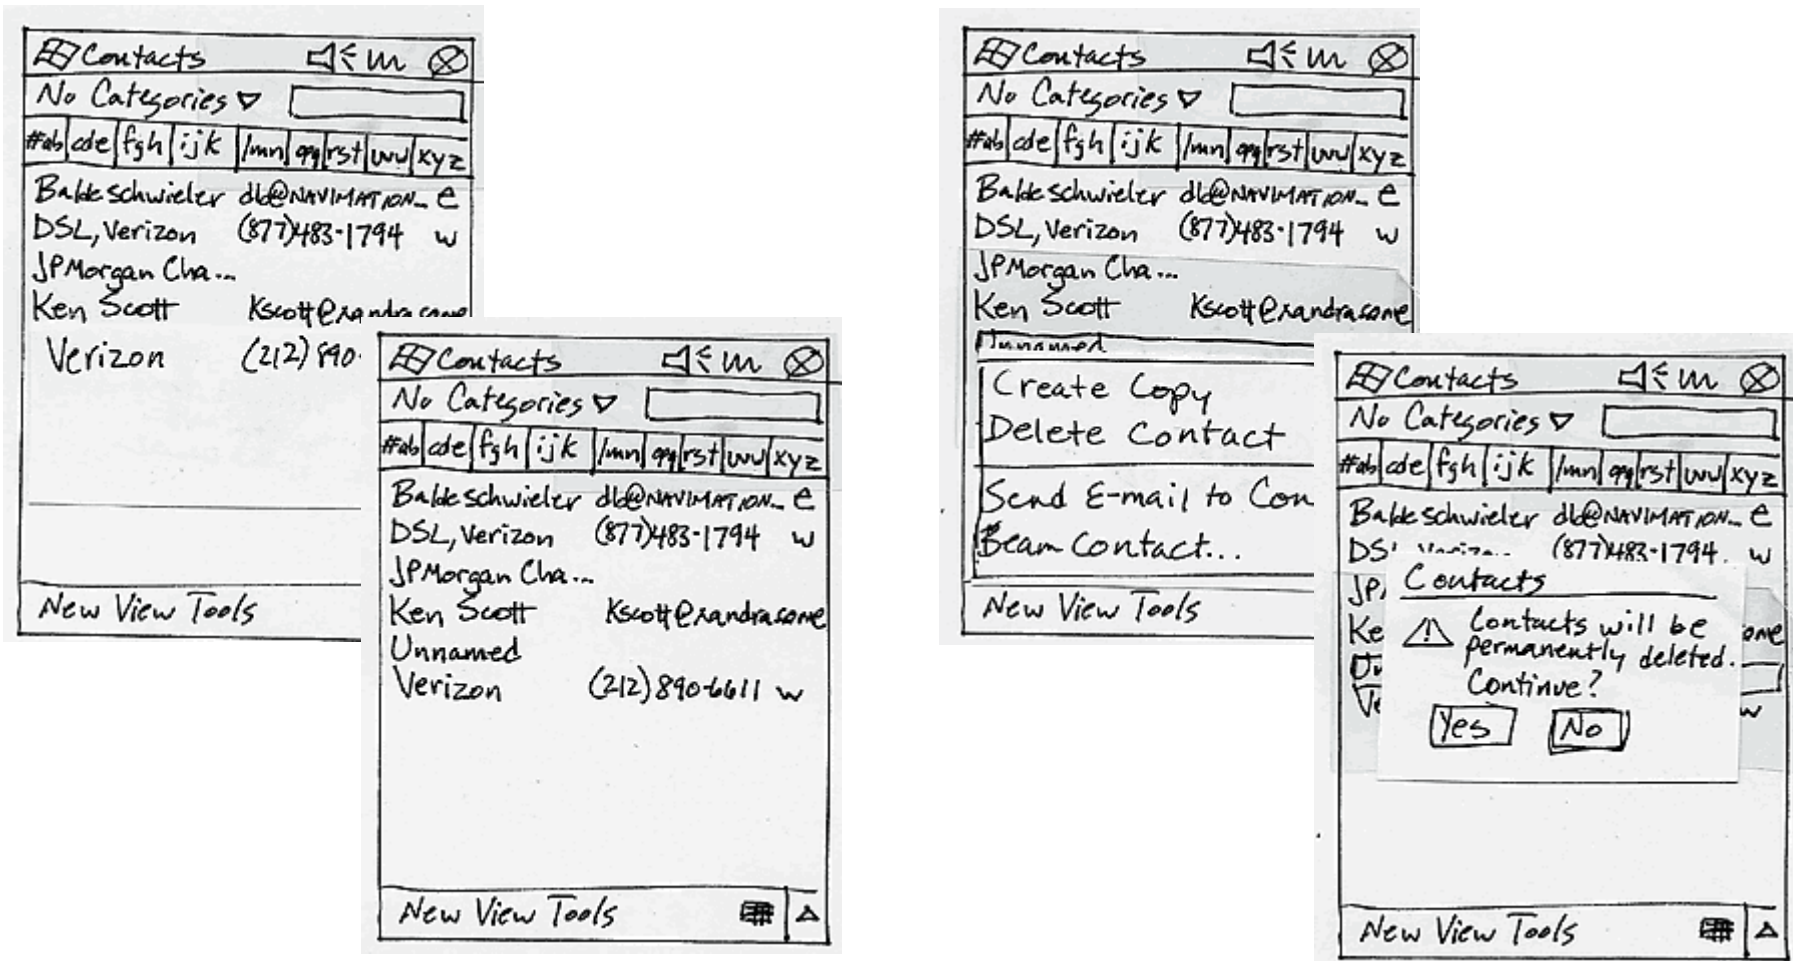 Contacts
No Categories
#ab cde fgh ijk lmn opq rst uvw xyz
Baldeschwieler db@NAVIMATION... e
DSL, Verizon (877)483-1794 w
JPMorgan Cha...
Ken Scott Kscott@xandrasome
Verizon (212) 890-
New View Tools
Contacts
No Categories
#ab cde fgh ijk lmn opq rst uvw xyz
Baldeschwieler db@NAVIMATION... e
DSL, Verizon (877)483-1794 w
JPMorgan Cha...
Ken Scott Kscott@xandrasome
Unnamed
Verizon (212) 890-6611 w
New View Tools
Contacts
No Categories
#ab cde fgh ijk lmn opq rst uvw xyz
Baldeschwieler db@NAVIMATION... e
DSL, Verizon (877)483-1794 w
JPMorgan Cha...
Ken Scott Kscott@xandrasome
Unnamed
Create Copy
Delete Contact
Send E-mail to Con
Beam Contact...
New View Tools
Contacts
No Categories
#ab cde fgh ijk lmn opq rst uvw xyz
Baldeschwieler db@NAVIMATION... e
DS (877)483-1794 w
JP
Ke ome
Un
Ve w
Contacts
Contacts will be
permanently deleted.
Continue?
Yes No
New View Tools